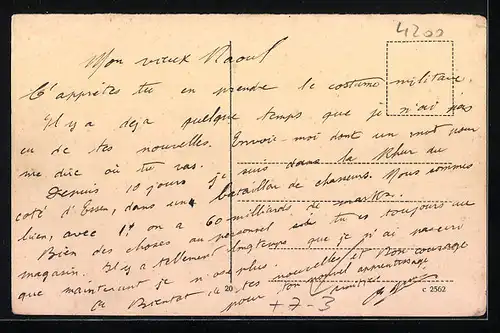 4200
Mon vieux Raoul
T'apprêtes tu en prendre le costume militaire.
Il y a deja quelque temps que je n'ai pas
eu de tes nouvelles. Envoie-moi dont un mot pour
me dire où tu vas.
Depuis 10 jours je suis dans la Rhur du
coté d'Essen, dans un bataillon de chasseurs. Nous sommes
bien, avec 1f on a 60 milliards de marks.
Bien des choses au personnel si tu es toujours au
magasin. Il y a tellement longtemps que je n'ai pas
que maintenant je n'ose plus
A Bientot de tes nouvelles et Bon courage
pour ton nouvel apprentissage
+7-3
20
c 2562